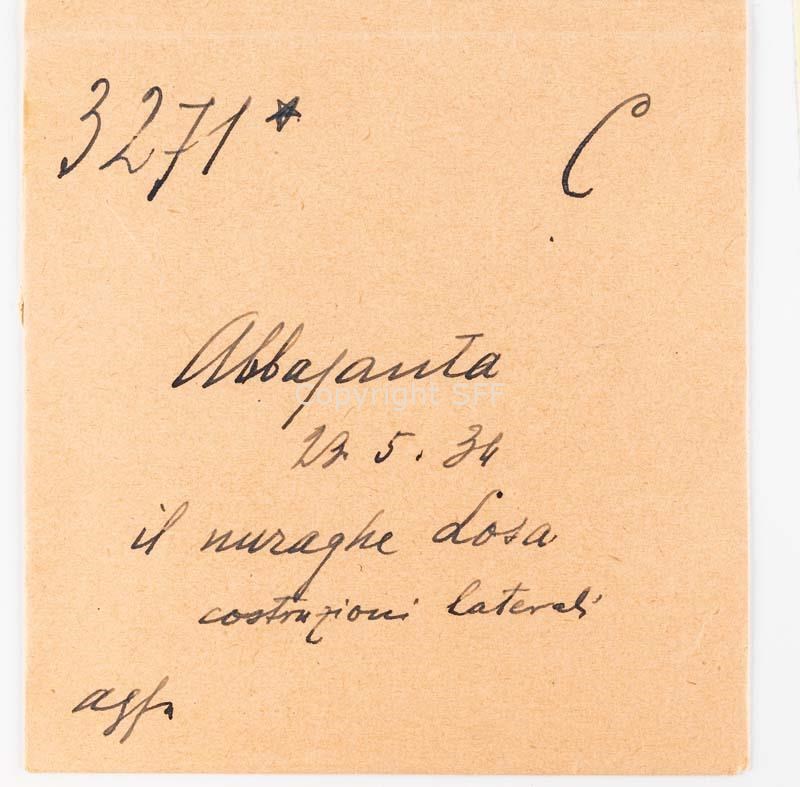 3271* C
Abbasanta
Copyright SFF
23.5.34
il nuraghe Losa
costruzioni laterali
agfa